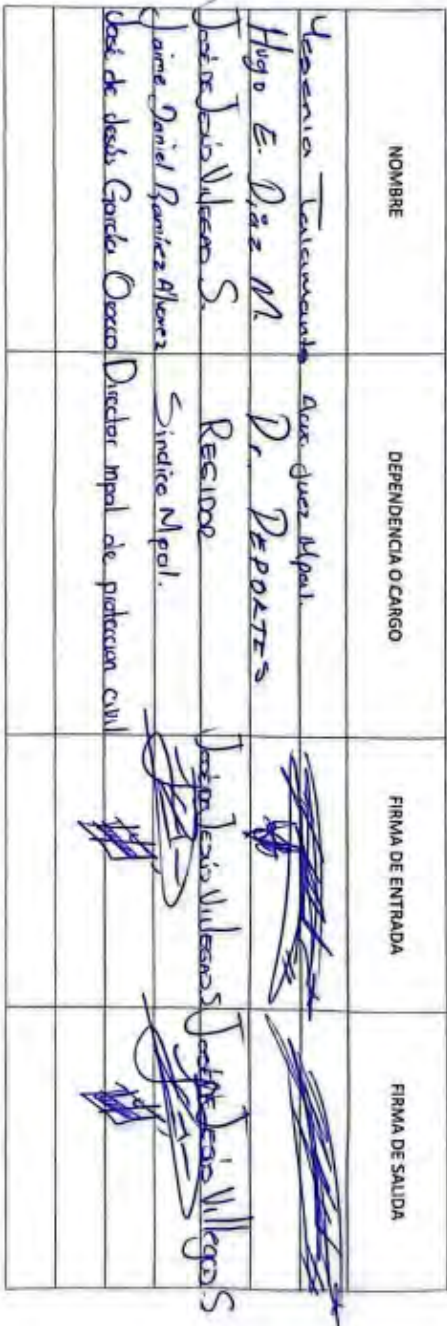 NOMBRE DEPENDENCIA O CARGO FIRMA DE ENTRADA FIRMA DE SALIDA
Yesenia Talamantes Aux. Juez Mpal.
Hugo E. Díaz M. Dr. DEPORTES
José de Jesús Villegas S. REGIDOR José de Jesús Villegas S José de Jesús Villegas S
Jaime Daniel Ramírez Alvarez Sindico Mpal.
José de Jesús García Orozco Director mpal de proteccion civil